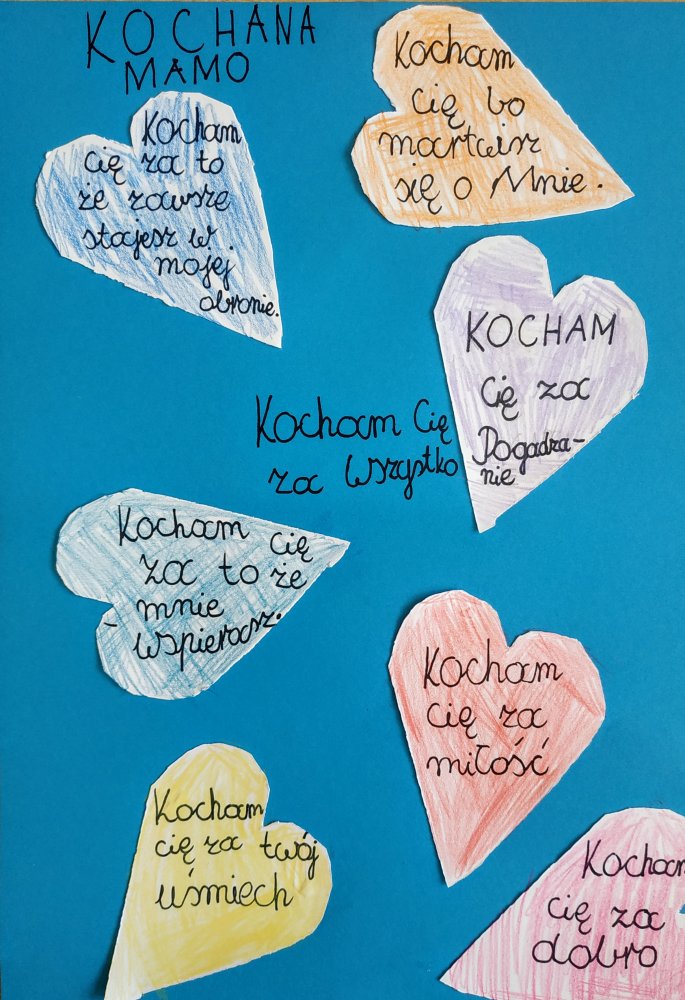 KOCHANA
MAMO
Kocham
cię za to
że zawsze
stajesz w
mojej
obronie.
Kocham
cię bo
martwisz
się o Mnie.
KOCHAM
Cię za
Dogadza-
nie
Kocham Cię
za wszystko
Kocham cię
za to że
mnie
wspierasz.
Kocham
cię za
miłość
Kocham
cię za twój
uśmiech
Kocham
cię za
dobro